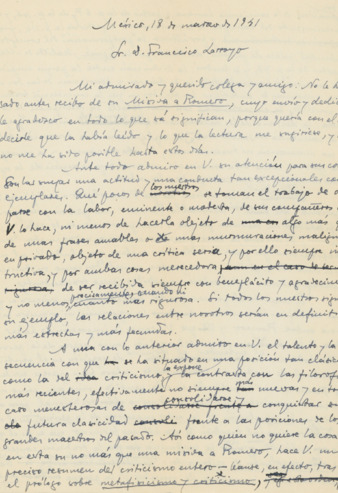 México, 18 de marzo de 1941
Sr. D. Francisco Larroyo
Mi admirado y querido colega y amigo: No le h
sado antes recibo de su Misiva a Romero, cuyo envío y dedi
le agradezco en todo lo que va significan, porque quería con el
decirle que la había leído y lo que la lectura me sugiriera, y
no me ha sido posible hasta estos días.
Ante todo admiro en V. su atención para sus co
Son las suyas una actitud y una conducta tan excepcionales co
ejemplares. Qué pocos de los nuestros se toman el trabajo de o
parse con la labor, eminente o modesta, de sus compañeros
V. lo hace, ni menos de hacerla objeto de algo más
de unas frases amables o unas murmuraciones malign
en privado, objeto de una crítica seria, y por ello siempre in
tructiva, y por ambas cosas merecedora
de ser recibida siempre con beneplácito y agradecim
y no menos precisamente cuando más rigurosa. Si todos los nuestros sigui
su ejemplo, las relaciones entre nosotros serían en definitiv
más estrechas y más fecundas.
A una con lo anterior admiro en V. el talento y la
secuencia con que se ha situado en una posición tan clásic
como la del criticismo y la contrasta con las filosof
más recientes, efectivamente no siempre más nuevas y en to
caso menesterosas de consolidarse y conquistar s
futura clasicidad frente a las posiciones de lo
grandes maestros del pasado. Así como quien no quiere la cosa
en esta su no más que una misiva a Romero, hace V. un
preciso resumen del criticismo entero —léanse, en efecto, tras
el prólogo sobre metafisicismo y criticismo,